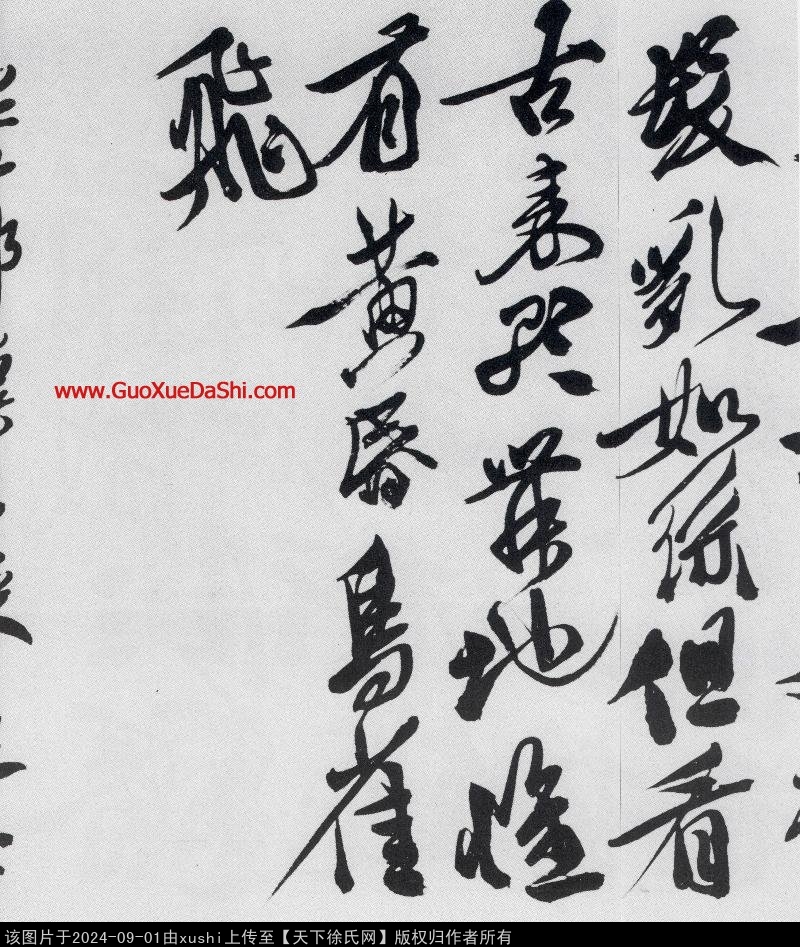 髮亂如絲但看
古来歌舞地惟
有黄昏鳥雀
飛
www.GuoXueDaShi.com
该图片于2024-09-01由xushi上传至【天下徐氏网】版权归作者所有